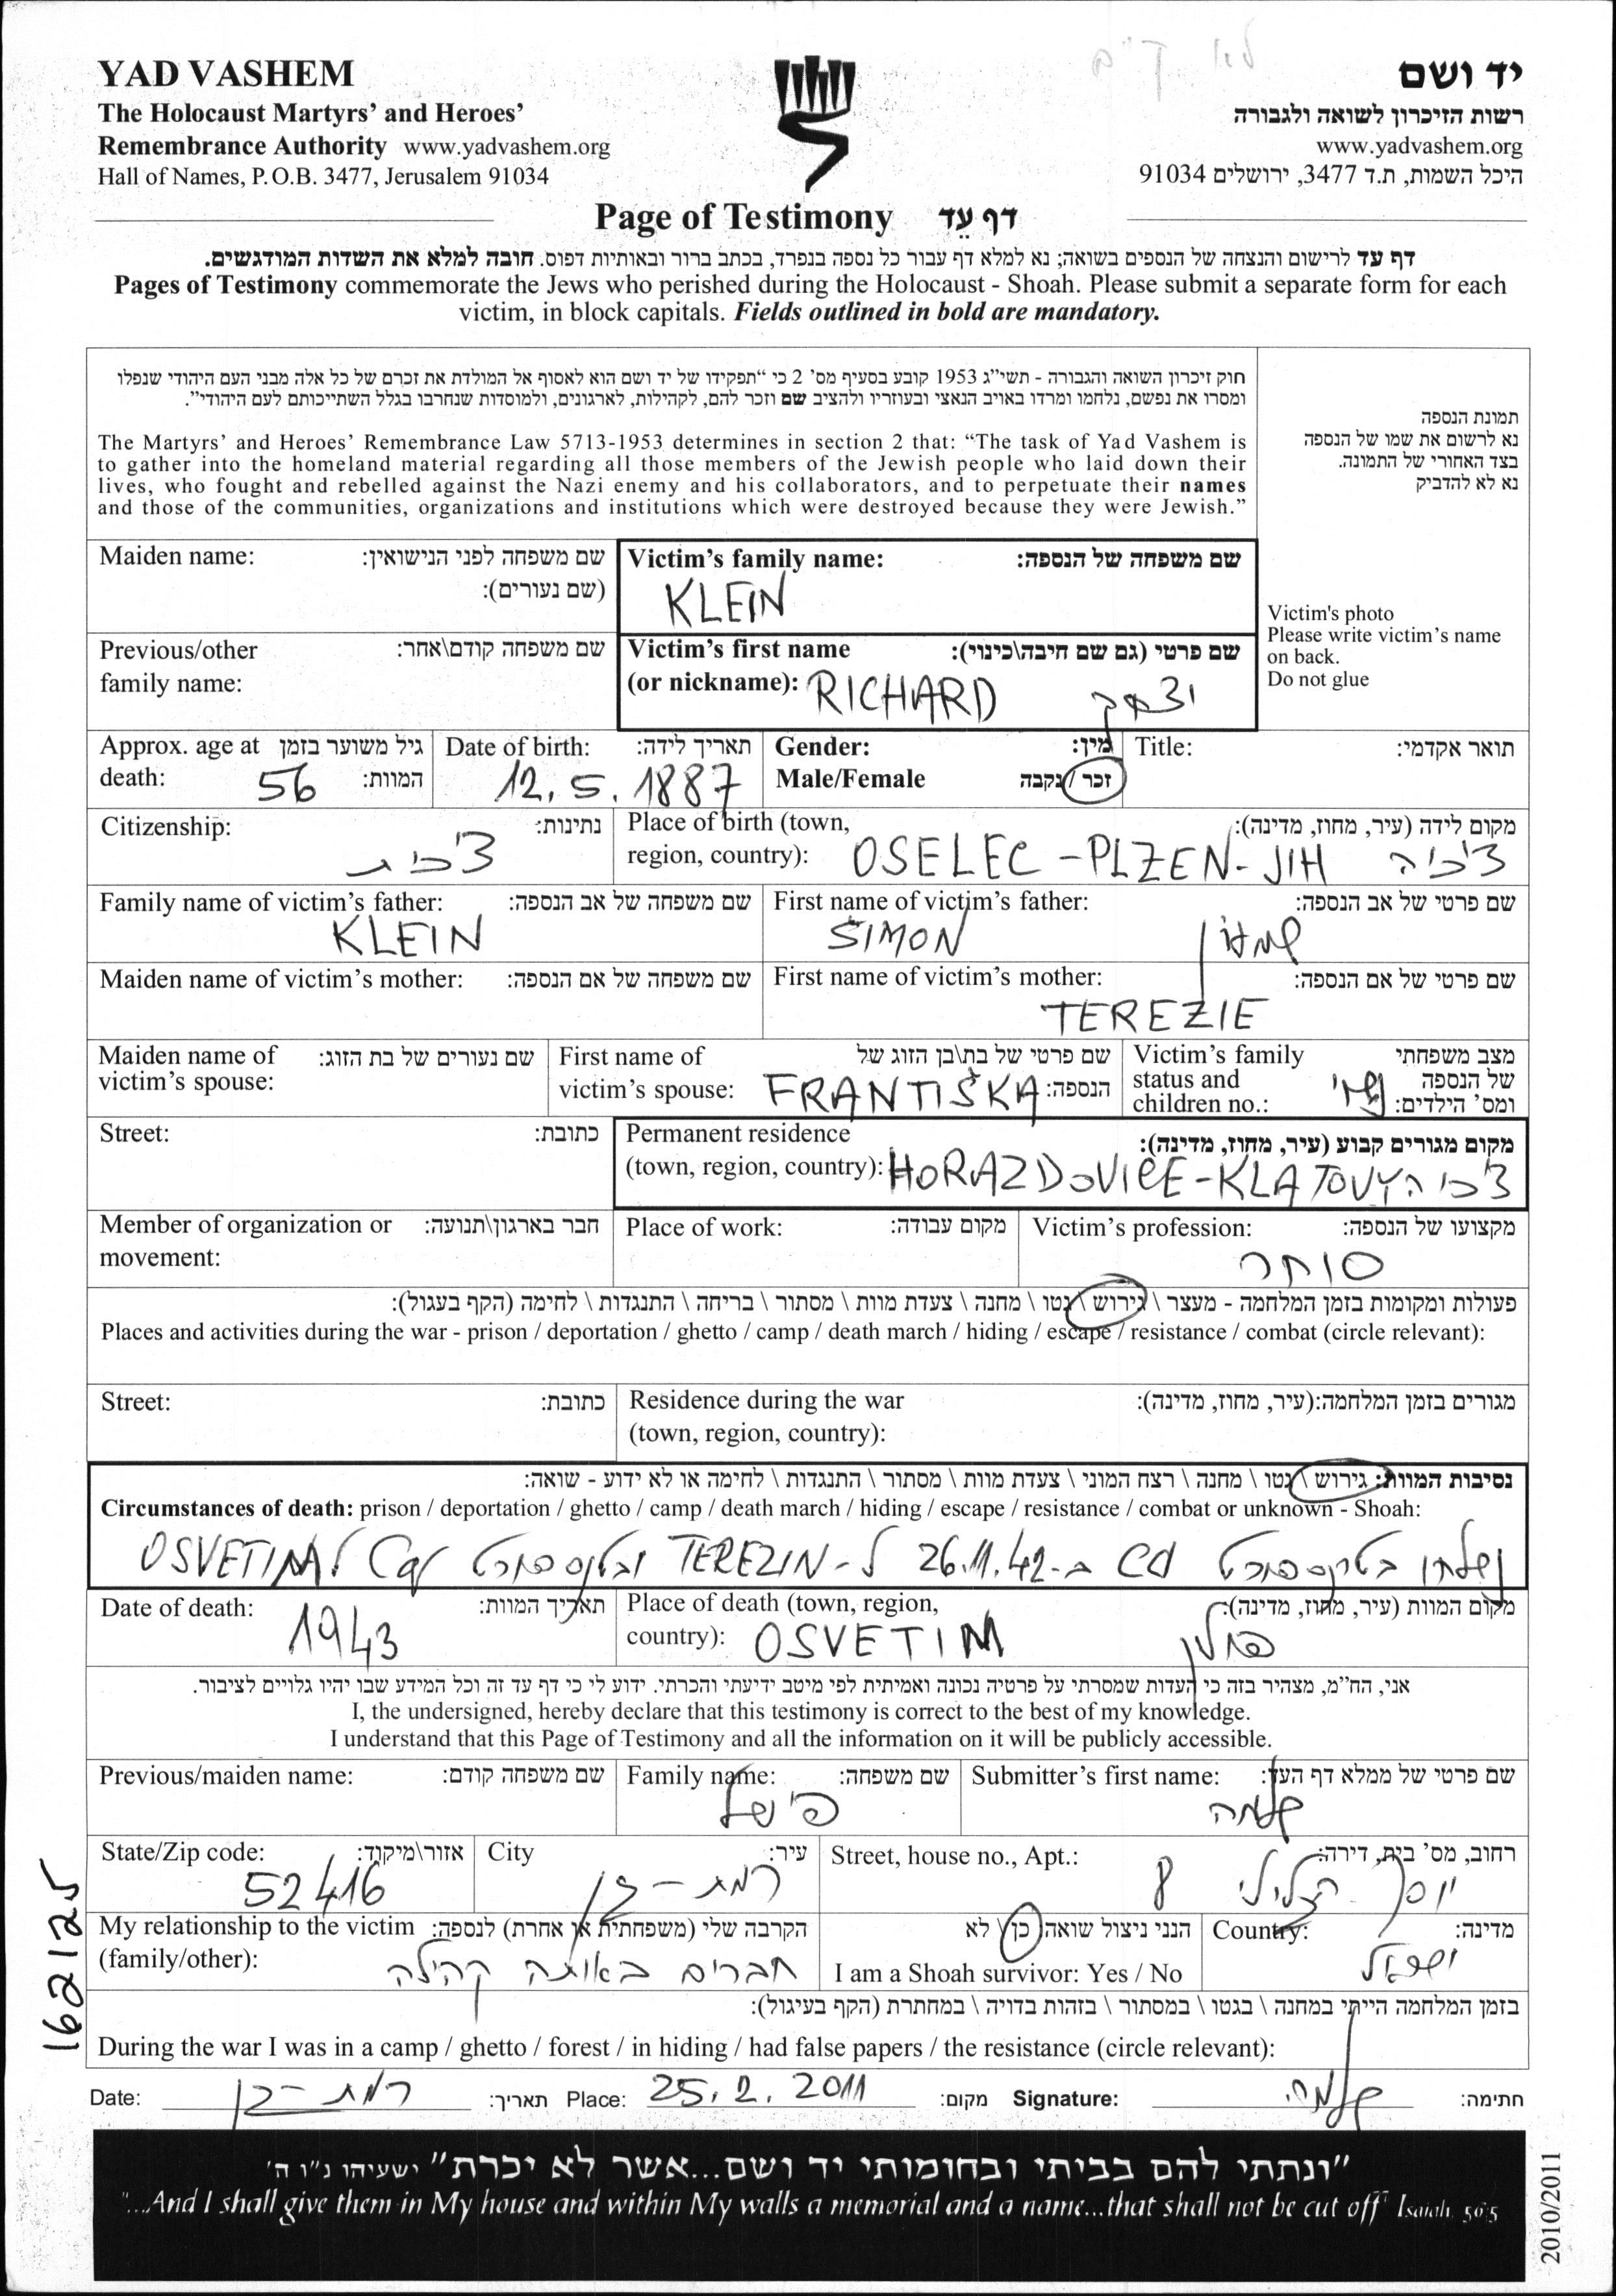 YAD VASHEM
The Holocaust Martyrs' and Heroes'
Remembrance Authority www.yadvashem.org
Hall of Names, P.O.B. 3477, Jerusalem 91034
יד ושם
רשות הזיכרון לשואה ולגבורה
www.yadvashem.org
היכל השמות, ת.ד 3477, ירושלים 91034
Page of Testimony דף עֵד
דף עד לרישום והנצחה של הנספים בשואה; נא למלא דף עבור כל נספה בנפרד, בכתב ברור ובאותיות דפוס. חובה למלא את השדות המודגשים.
Pages of Testimony commemorate the Jews who perished during the Holocaust - Shoah. Please submit a separate form for each
victim, in block capitals. Fields outlined in bold are mandatory.
חוק זיכרון השואה והגבורה - תשי"ג 1953 קובע בסעיף מס' 2 כי "תפקידו של יד ושם הוא לאסוף אל המולדת את זכרם של כל אלה מבני העם היהודי שנפלו
ומסרו את נפשם, נלחמו ומרדו באויב הנאצי ובעוזריו ולהציב שם וזכר להם, לקהילות, לארגונים, ולמוסדות שנחרבו בגלל השתייכותם לעם היהודי".
The Martyrs' and Heroes' Remembrance Law 5713-1953 determines in section 2 that: "The task of Yad Vashem is
to gather into the homeland material regarding all those members of the Jewish people who laid down their
lives, who fought and rebelled against the Nazi enemy and his collaborators, and to perpetuate their names
and those of the communities, organizations and institutions which were destroyed because they were Jewish."
תמונת הנספה
נא לרשום את שמו של הנספה
בצד האחורי של התמונה.
נא לא להדביק
Victim's photo
Please write victim's name
on back.
Do not glue
Maiden name: שם משפחה לפני הנישואין:
(שם נעורים):
Victim's family name: שם משפחה של הנספה:
KLEIN
Previous/other שם משפחה קודם\אחר:
family name:
Victim's first name שם פרטי (גם שם חיבה\כינוי):
(or nickname): RICHARD יצחק
Approx. age at גיל משוער בזמן
death: 56 המוות:
Date of birth: תאריך לידה:
12.5.1887
Gender: מין:
Male/Female זכר / נקבה
Title: תואר אקדמי:
Citizenship: נתינות:
צ'כית
Place of birth (town, מקום לידה (עיר, מחוז, מדינה):
region, country): OSELEC - PLZEN - JIH צ'כיה
Family name of victim's father: שם משפחה של אב הנספה:
KLEIN
First name of victim's father: שם פרטי של אב הנספה:
SIMON שמעון
Maiden name of victim's mother: שם משפחה של אם הנספה:
First name of victim's mother: שם פרטי של אם הנספה:
TEREZIE
Maiden name of שם נעורים של בת הזוג:
victim's spouse:
First name of שם פרטי של בת\בן הזוג של
victim's spouse: FRANTIŠKA הנספה:
Victim's family מצב משפחתי
status and של הנספה
children no.: נשוי ומס' הילדים:
Street: כתובת:
Permanent residence מקום מגורים קבוע (עיר, מחוז, מדינה):
(town, region, country): HORAZDOVICE - KLATOVY צ'כיה
Member of organization or חבר בארגון\תנועה:
movement:
Place of work: מקום עבודה:
Victim's profession: מקצועו של הנספה:
סוחר
פעולות ומקומות בזמן המלחמה - מעצר \ גירוש \ גטו \ מחנה \ צעדת מוות \ מסתור \ בריחה \ התנגדות \ לחימה (הקף בעגול):
Places and activities during the war - prison / deportation / ghetto / camp / death march / hiding / escape / resistance / combat (circle relevant):
Street: כתובת:
Residence during the war מגורים בזמן המלחמה:(עיר, מחוז, מדינה):
(town, region, country):
נסיבות המוות: גירוש \ גטו \ מחנה \ רצח המוני \ צעדת מוות \ מסתור \ התנגדות \ לחימה או לא ידוע - שואה:
Circumstances of death: prison / deportation / ghetto / camp / death march / hiding / escape / resistance / combat or unknown - Shoah:
נשלחו בטרנספורט Cd ב-26.11.42 ל-TEREZIN ובטרנספורט Cq ל OSVETIM
Date of death: תאריך המוות:
1943
Place of death (town, region, מקום המוות (עיר, מחוז, מדינה):
country): OSVETIM פולין
אני, הח"מ, מצהיר בזה כי העדות שמסרתי על פרטיה נכונה ואמיתית לפי מיטב ידיעתי והכרתי. ידוע לי כי דף עד זה וכל המידע שבו יהיו גלויים לציבור.
I, the undersigned, hereby declare that this testimony is correct to the best of my knowledge.
I understand that this Page of Testimony and all the information on it will be publicly accessible.
Previous/maiden name: שם משפחה קודם:
Family name: שם משפחה:
פישל
Submitter's first name: שם פרטי של ממלא דף העד:
שלמה
State/Zip code: אזור\מיקוד:
52416
City עיר:
רמת-גן
Street, house no., Apt.: רחוב, מס' בית, דירה:
יוסף הגלילי 8
My relationship to the victim הקרבה שלי (משפחתית או אחרת) לנספה:
(family/other): חברים באותה קהילה
הנני ניצול שואה כן \ לא
I am a Shoah survivor: Yes / No
Country: מדינה:
ישראל
בזמן המלחמה הייתי במחנה \ בגטו \ במסתור \ בזהות בדויה \ במחתרת (הקף בעיגול):
During the war I was in a camp / ghetto / forest / in hiding / had false papers / the resistance (circle relevant):
Date: רמת-גן תאריך: Place: 25.2.2011 מקום: Signature: חתימה:
"ונתתי להם בביתי ובחומותי יד ושם...אשר לא יכרת" ישעיהו נ"ו ה'
"...And I shall give them in My house and within My walls a memorial and a name...that shall not be cut off" Isaiah 56:5
162125
2010/2011